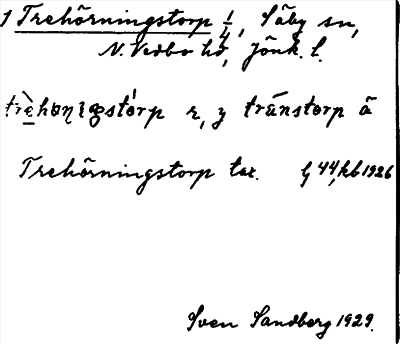 1 Trehörningstorp 1/4, Säby sn,
N. Vedbo hd, Jönk. l.
trèhøŋıgstórp r, y tránstorp ä
Trehörningstorp tax. G 44, kb 1926
Sven Sandberg 1929.